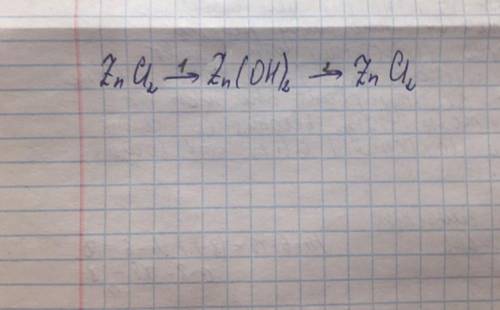 ZnCl₂ →¹ Zn(OH)₂ →² ZnCl₂